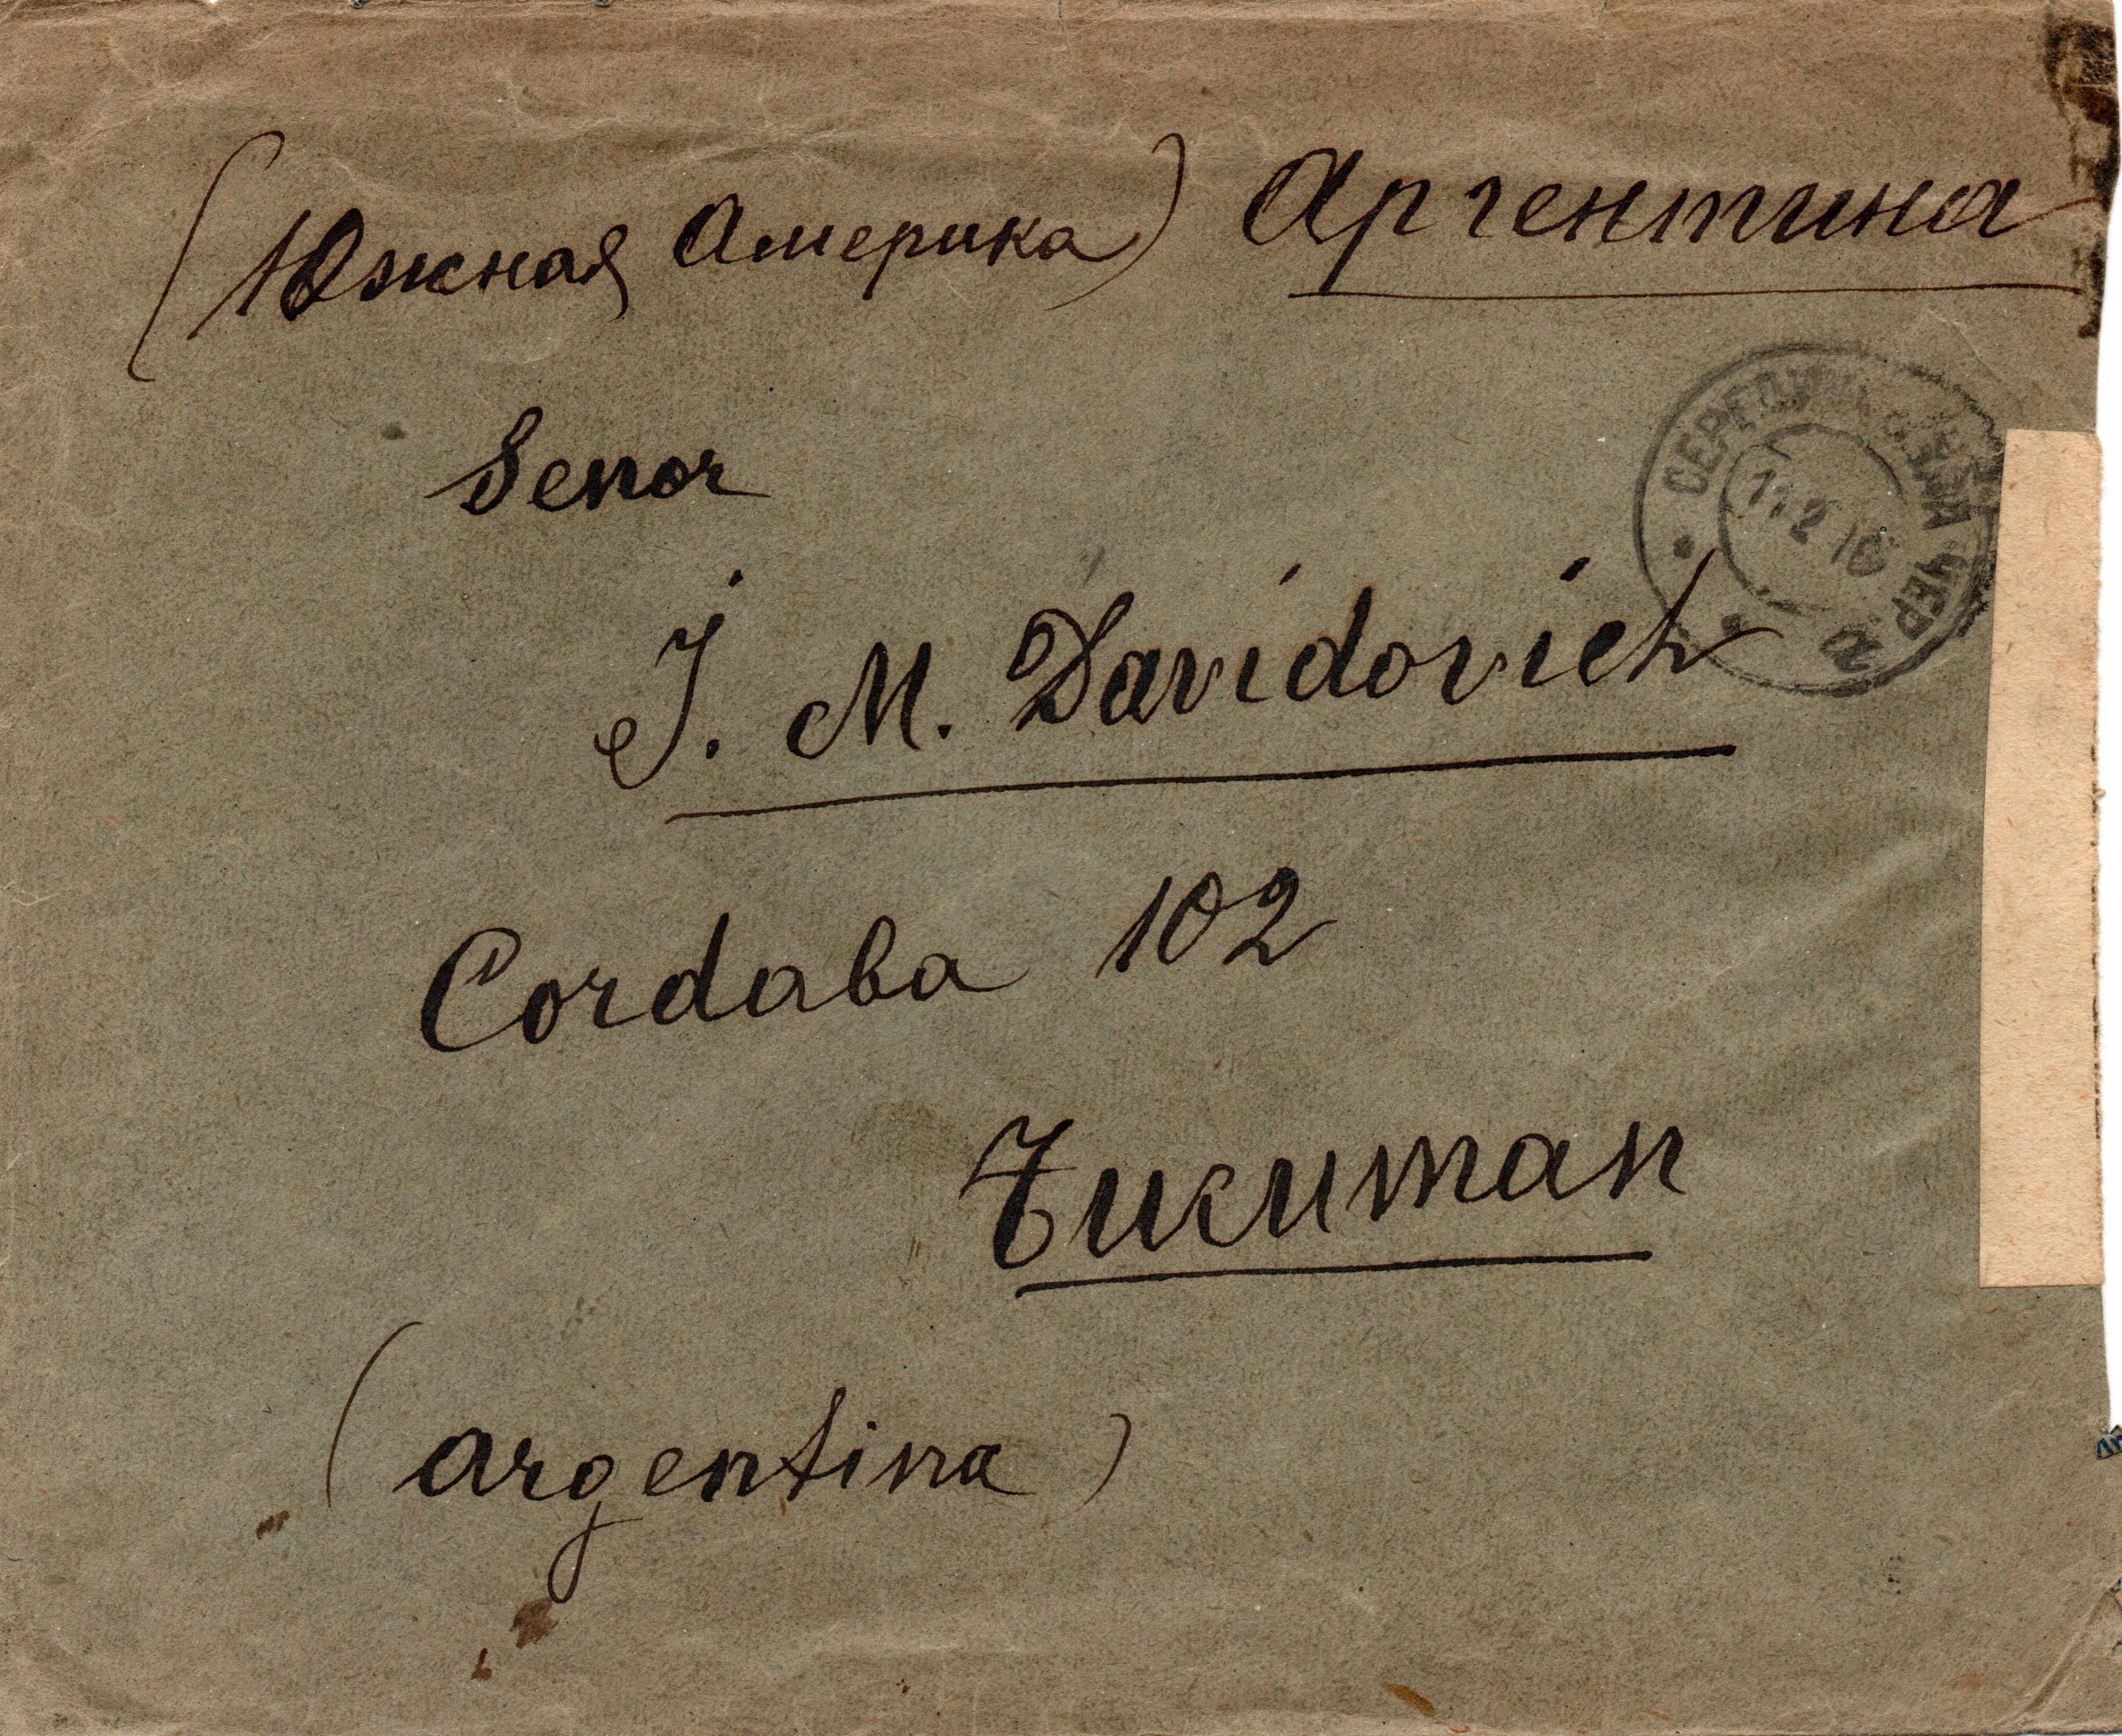 (Южная Америка) Аргентина
Senor
J. M. Davidovich
Cordaba 102
Tucuman
(Argentina)
ЧЕР